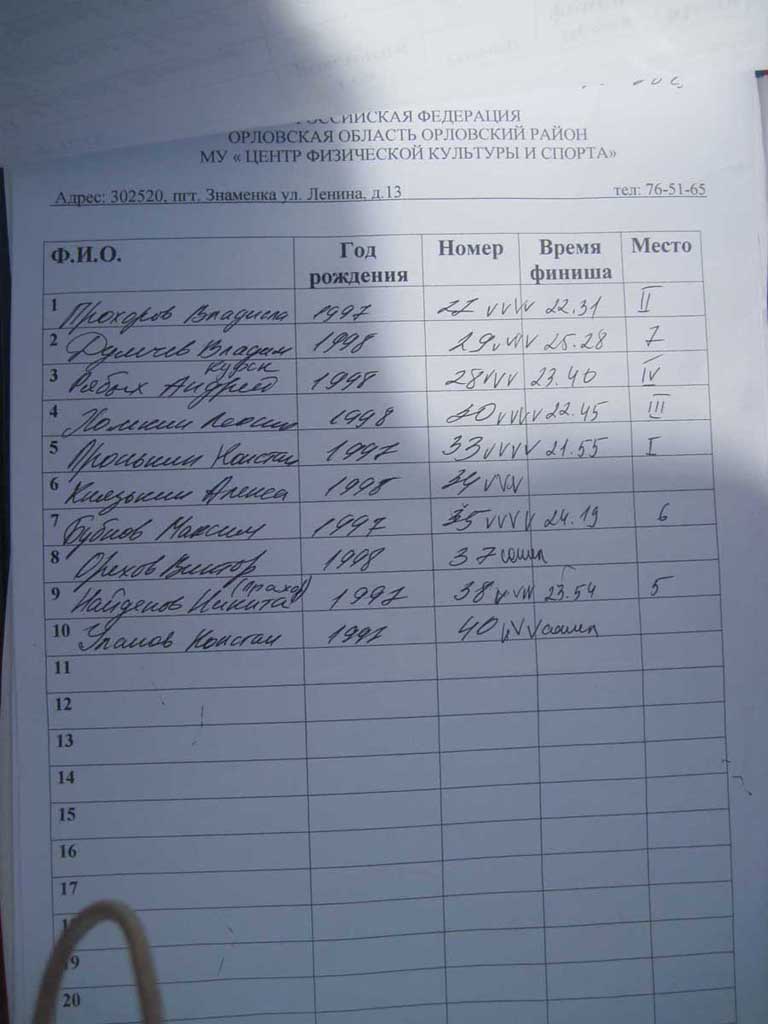 РОССИЙСКАЯ ФЕДЕРАЦИЯ
ОРЛОВСКАЯ ОБЛАСТЬ ОРЛОВСКИЙ РАЙОН
МУ « ЦЕНТР ФИЗИЧЕСКОЙ КУЛЬТУРЫ И СПОРТА»
Адрес: 302520, пгт. Знаменка ул. Ленина, д.13 тел: 76-51-65
Ф.И.О. Год рождения Номер Время финиша Место
1 Прохоров Владисла 1997 27 vvvv 22.31 II
2 Владим 1998 29 vvvv 25.28 7
Курск
3 Рябых Андрей 1998 28 vvv 23.40 IV
4 1998 vvvv 22.45 III
5 Пронькин Констан 1997 33 vvvv 21.55 I
6 Князькин Алекса 1998 34 vvv
7 Бубнов Максим 1997 35 vvvv 24.19 6
8 Орехов Виктор 1998 37 сошел
9 Найденов Никита 1997 38 vvvv 23.54 5
10 Констан 1997 40 vvv сошел
11
12
13
14
15
16
17
19
20